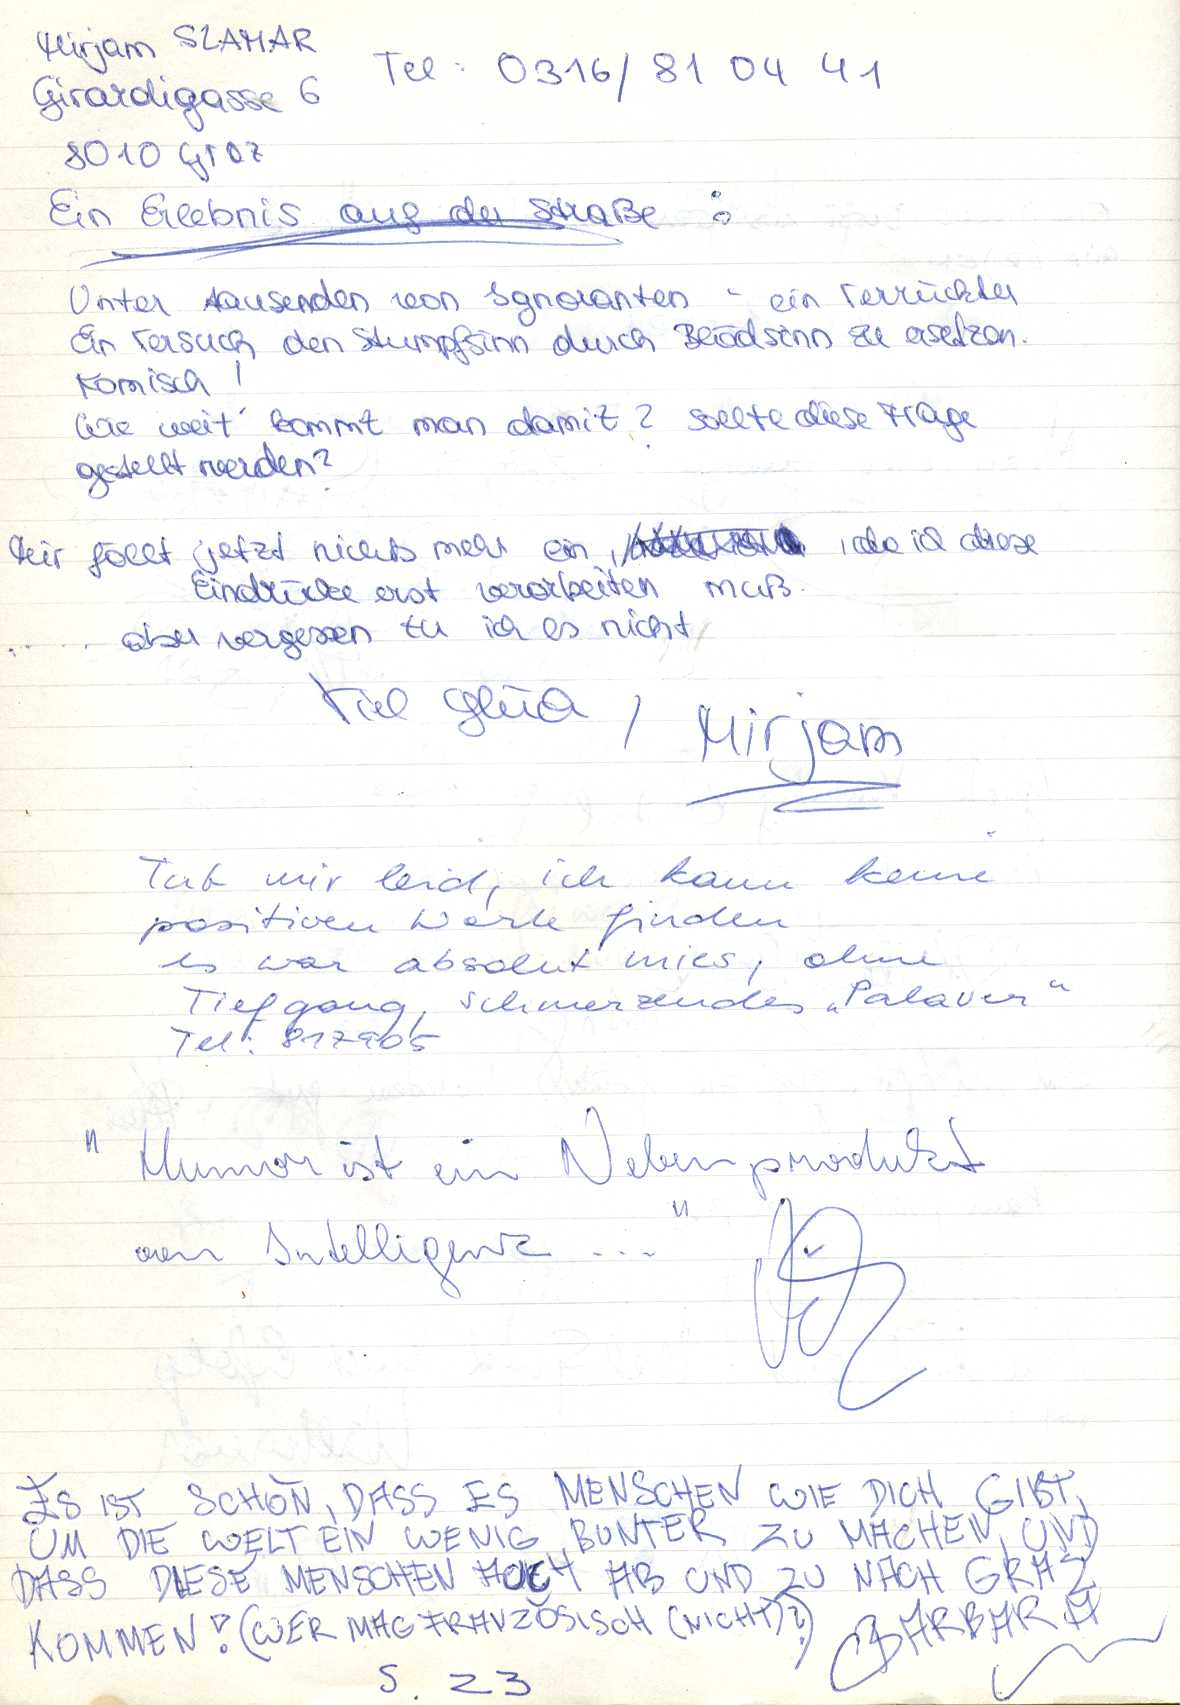 Mirjam SLAMAR
Girardigasse 6
Tel: 0316/81 04 41
8010 Graz
Ein Erlebnis auf der Straße :
Unter tausenden von Ignoranten - ein Verrückter
Ein Versuch den Stumpfsinn durch Blödsinn zu ersetzen.
Komisch!
Wie weit kommt man damit? Sollte diese Frage
gestellt werden?
Mir fällt jetzt nichts mehr ein, da ich diese
Eindrücke erst verarbeiten muß.
..... aber vergessen tu ich es nicht
Viel Glück / Mirjam
Tut mir leid, ich kann keine
positiven Worte finden
es war absolut mies, ohne
Tiefgang, schmerzendes „Palaver"
Tel: 817905
" Humor ist ein Nebenprodukt
von Intelligenz ... "
ES IST SCHÖN, DASS ES MENSCHEN WIE DICH GIBT,
UM DIE WELT EIN WENIG BUNTER ZU MACHEN, UND
DASS DIESE MENSCHEN AUCH AB UND ZU NACH GRAZ
KOMMEN! (WER MAG FRANZÖSISCH (NICHT)?) BARBARA
S. 23